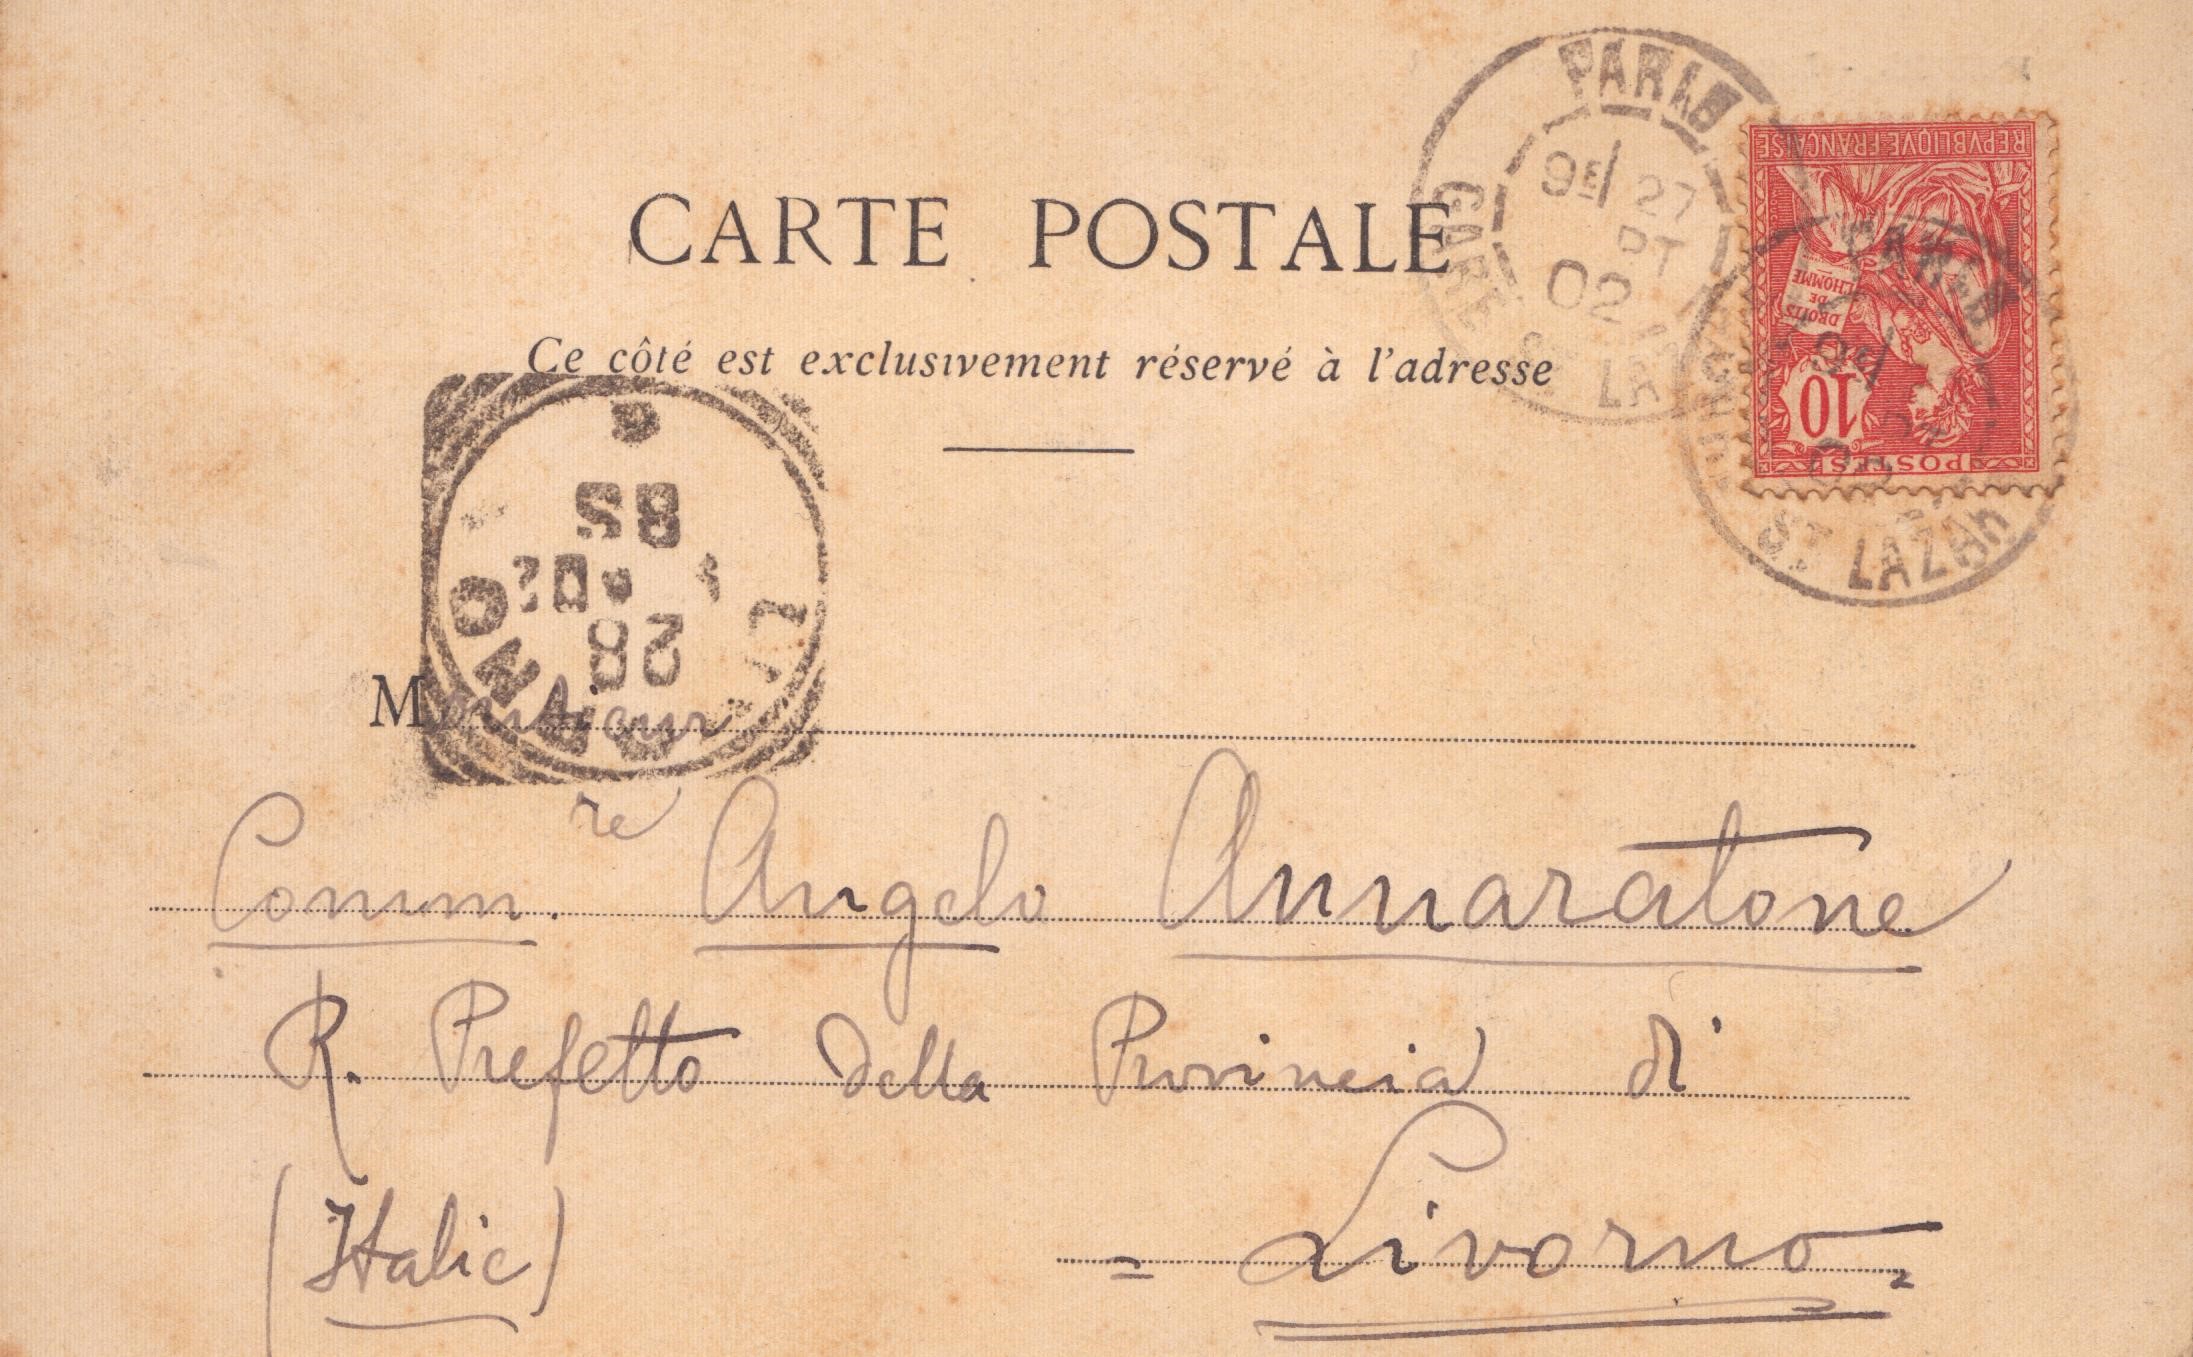 CARTE POSTALE
Ce côté est exclusivement réservé à l'adresse
PARIS
9E 27
02
GARE ST LA
REPVBLIQVE FRANÇAISE
DROITS
DE
L'HOMME
10
POSTES
PARIS
ST LAZAR
8S
02
28
Monsieur
Comm.re Angelo Annaratone
R. Prefetto della Provincia di
(Italie) = Livorno =